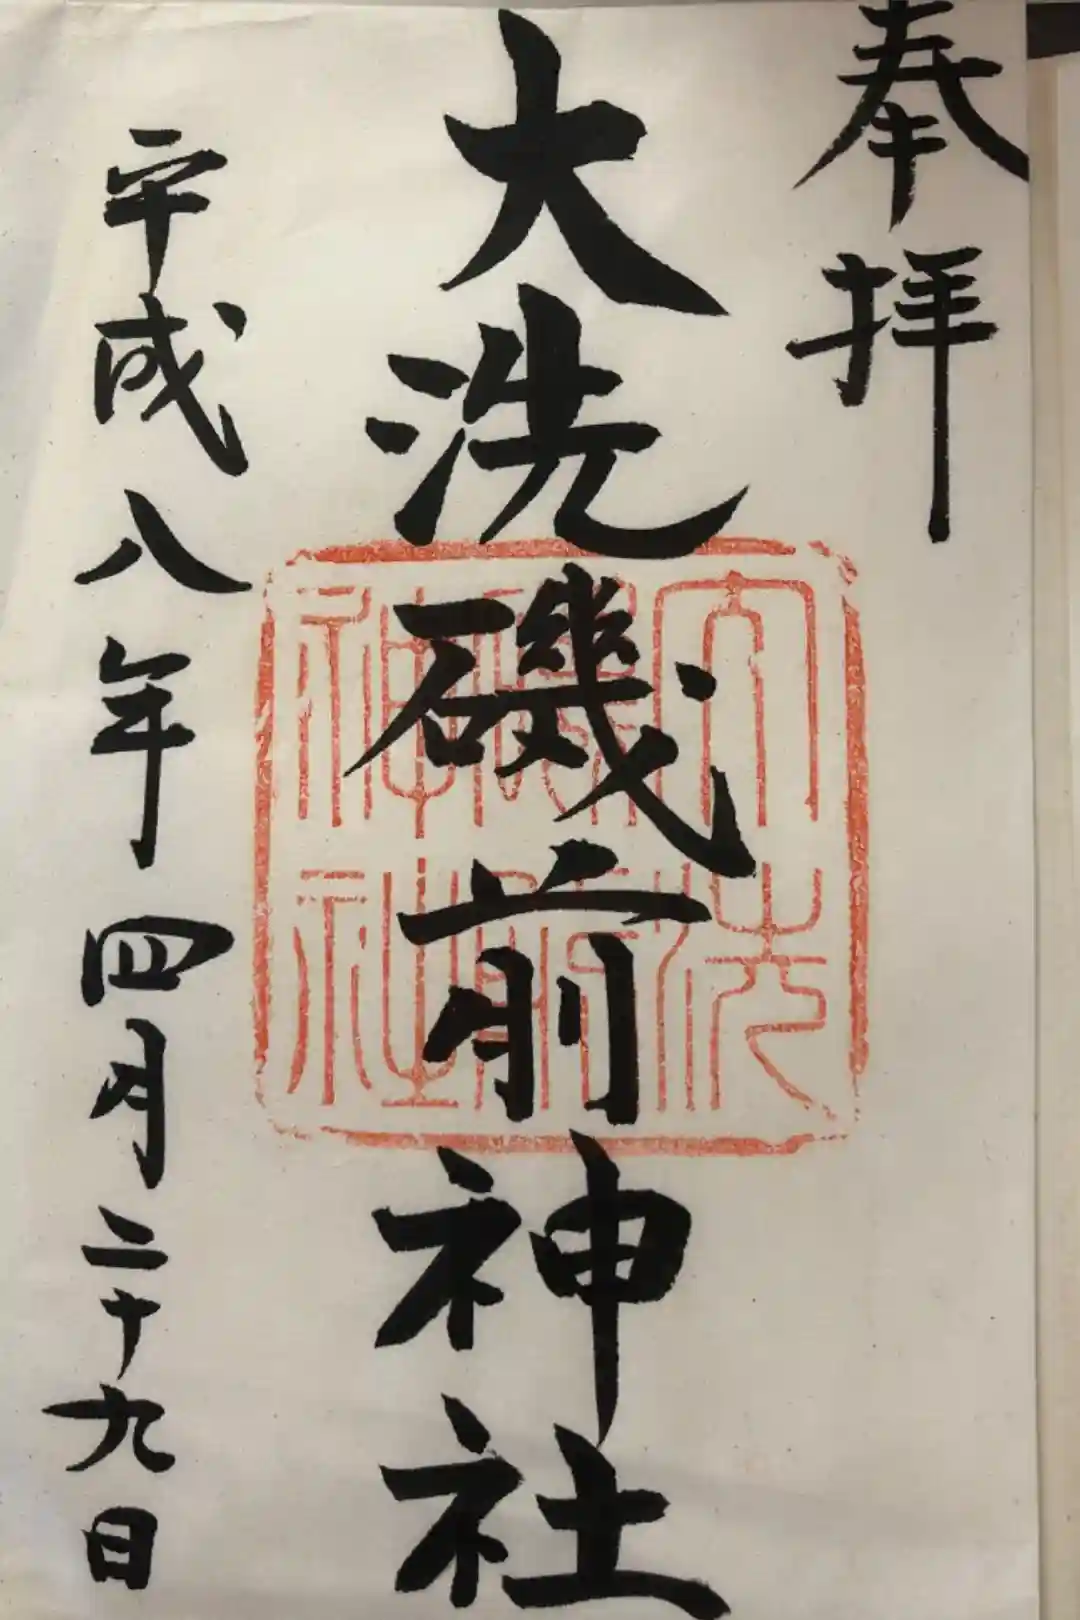 奉拝
大洗磯前神社
大洗
磯前
神社
平成八年四月二十九日